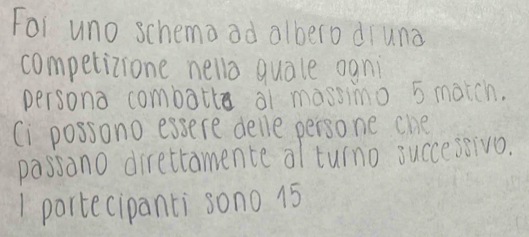 Fai uno schema ad albero di una
competizione nella quale ogni
persona combatta al massimo 5 match.
Ci possono essere delle persone che
passano direttamente al turno successivo.
I partecipanti sono 15